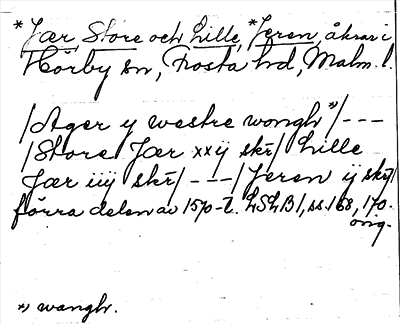 *Jær, Store och Lille, *Jeren, åkrar i
Hörby sn, Frosta hd, Malm. l.
/Ager y westre wongh*)/---
/Store Jær xxij skr/ Lille
Jær iiij skr/---/Jeren ij skr/
förra delen av 1570-t. LSLB 1, ss. 168, 170.
orig.
*) wanghr.